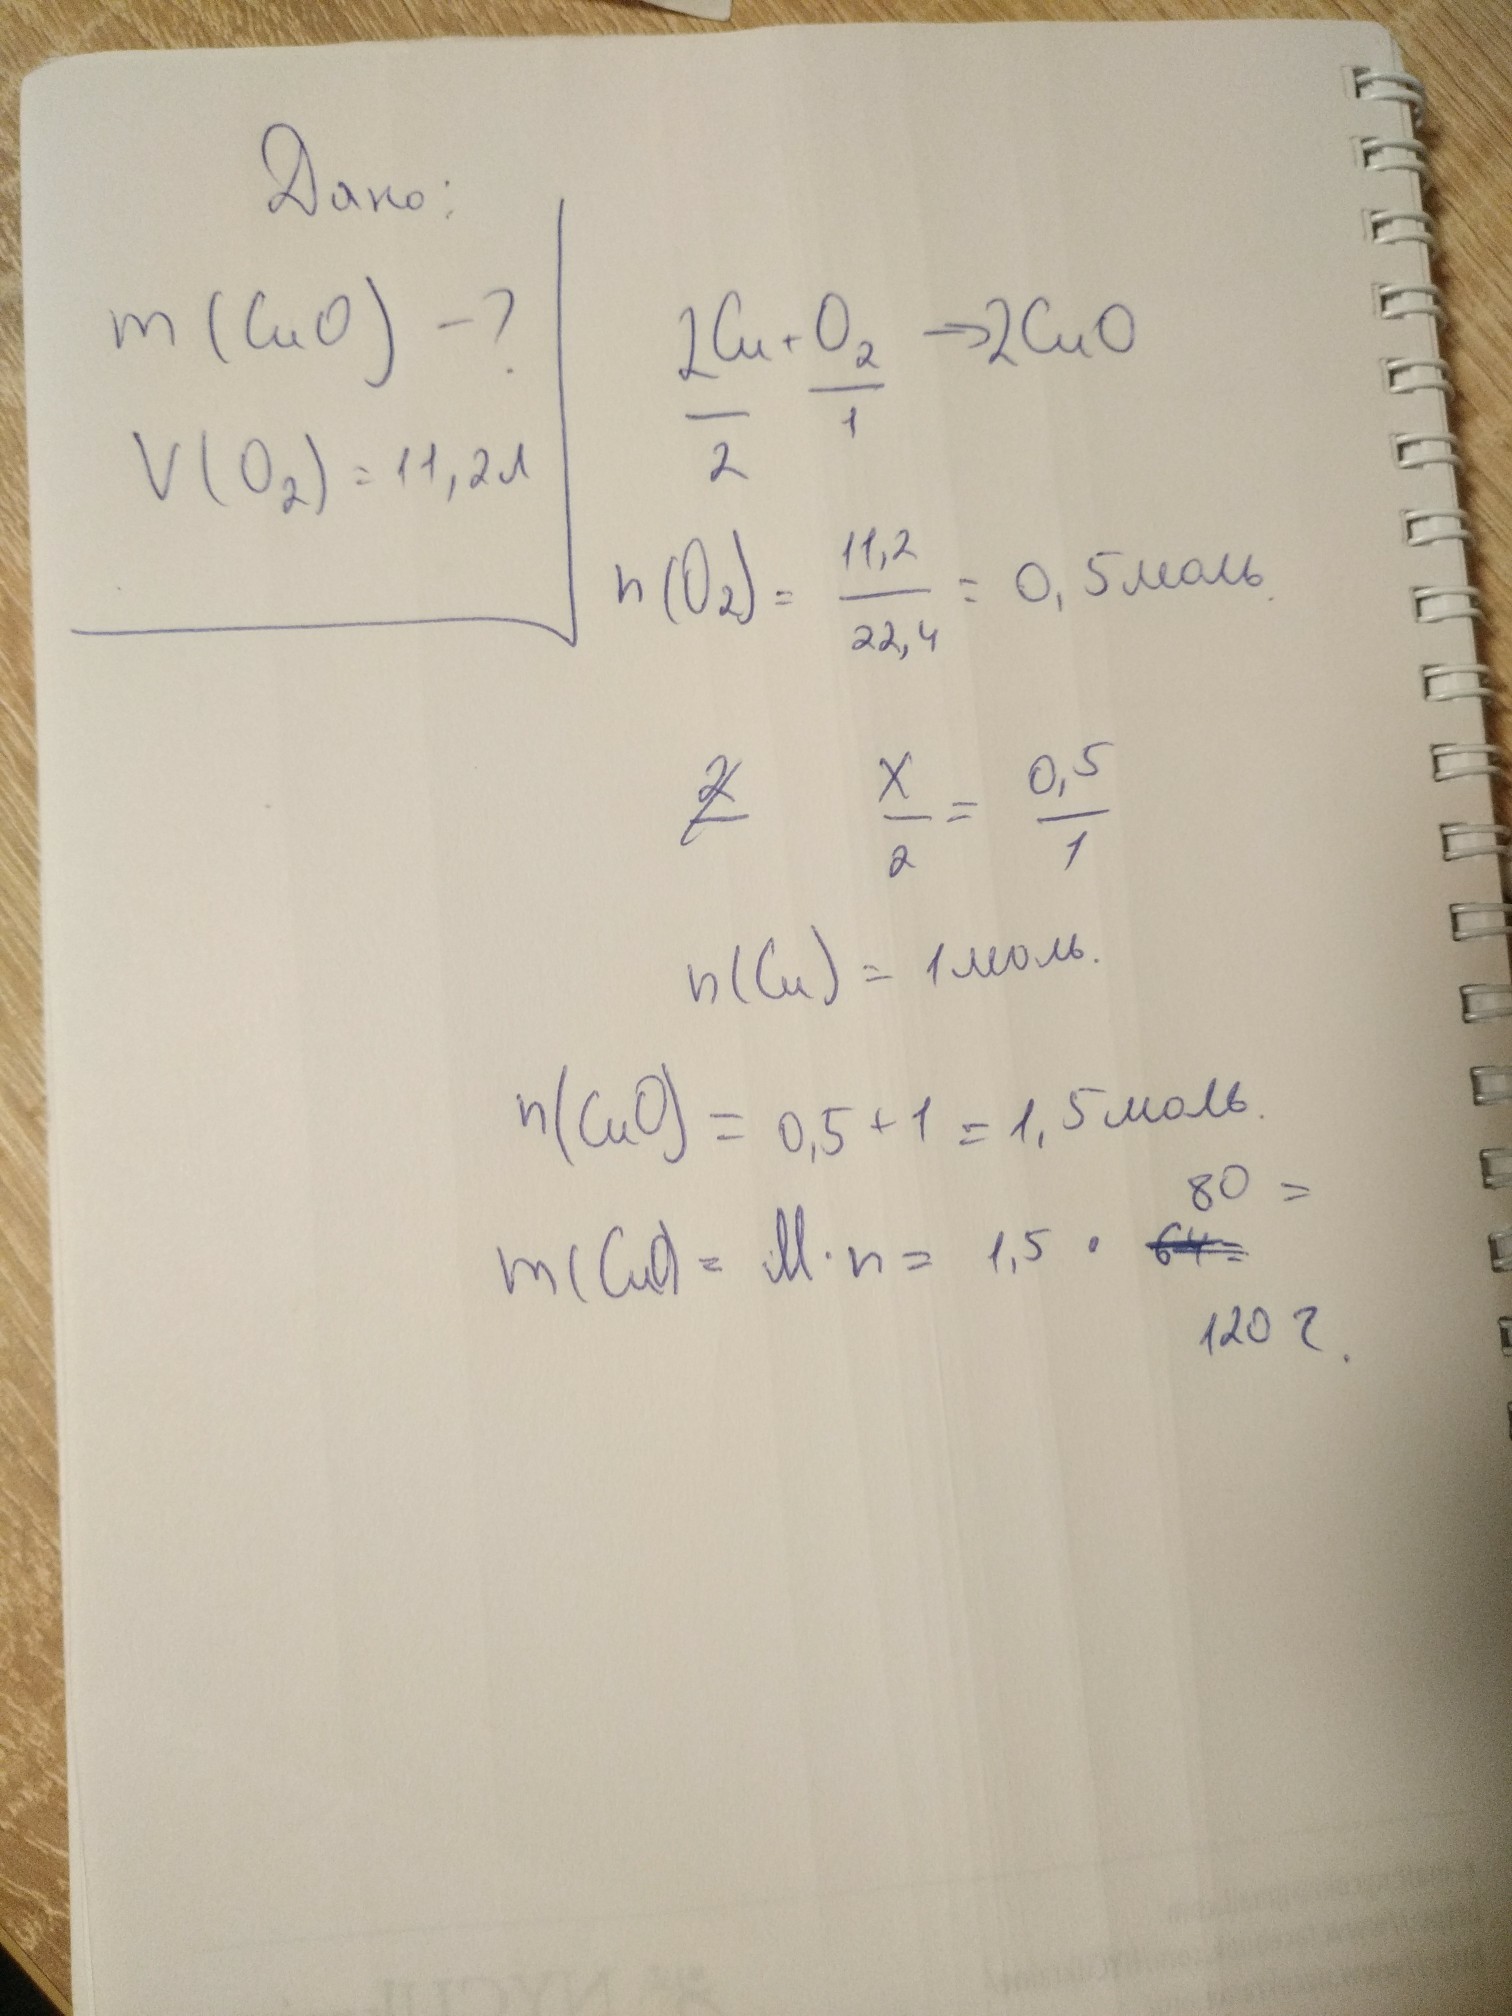 Дано:
m(CuO) - ?
V(O₂) = 11,2л
2Cu + O₂ → 2CuO
2 1
n(O₂) = 11,2/22,4 = 0,5 моль.
x/2 = 0,5/1
n(Cu) = 1 моль.
n(CuO) = 0,5 + 1 = 1,5 моль.
m(CuO) = M · n = 1,5 · 80 =
120 г.